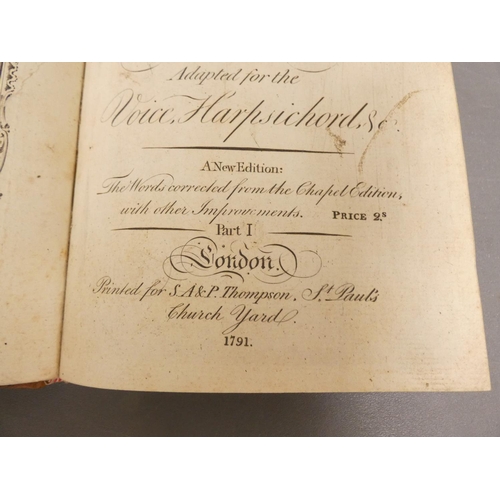 Adapted for the
Voice, Harpsichord, &c.
A New Edition:
The Words corrected from the Chapel Edition,
with other Improvements. PRICE 2.s
Part I
London.
Printed for S. A & P. Thompson, St. Paul's
Church Yard.
1791.